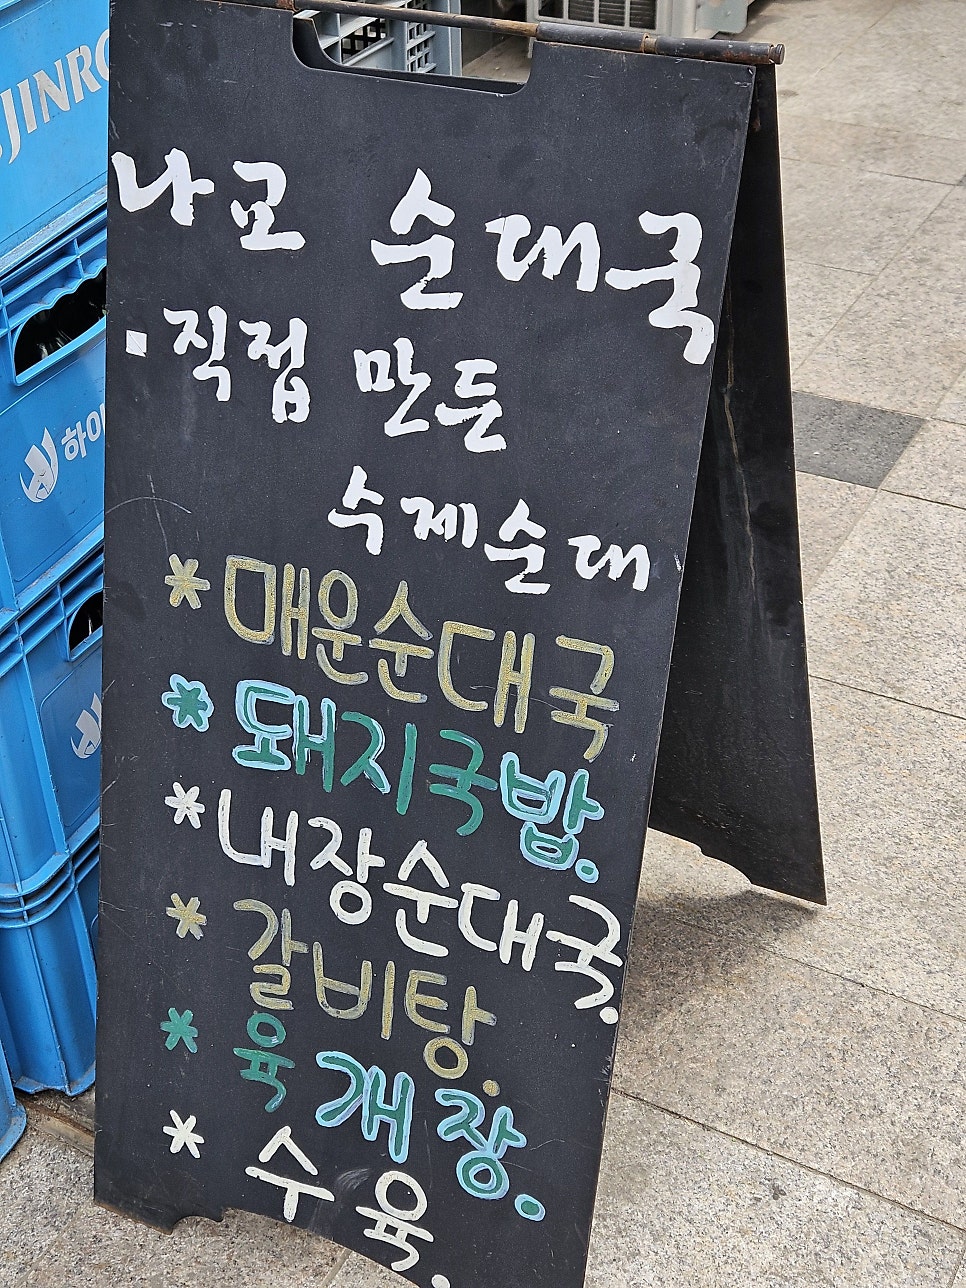 JINRO
하이
나교 순대국
· 직접 만든
수제순대
* 매운순대국
* 돼지국밥.
* 내장순대국.
* 갈비탕.
* 육개장.
* 수육.